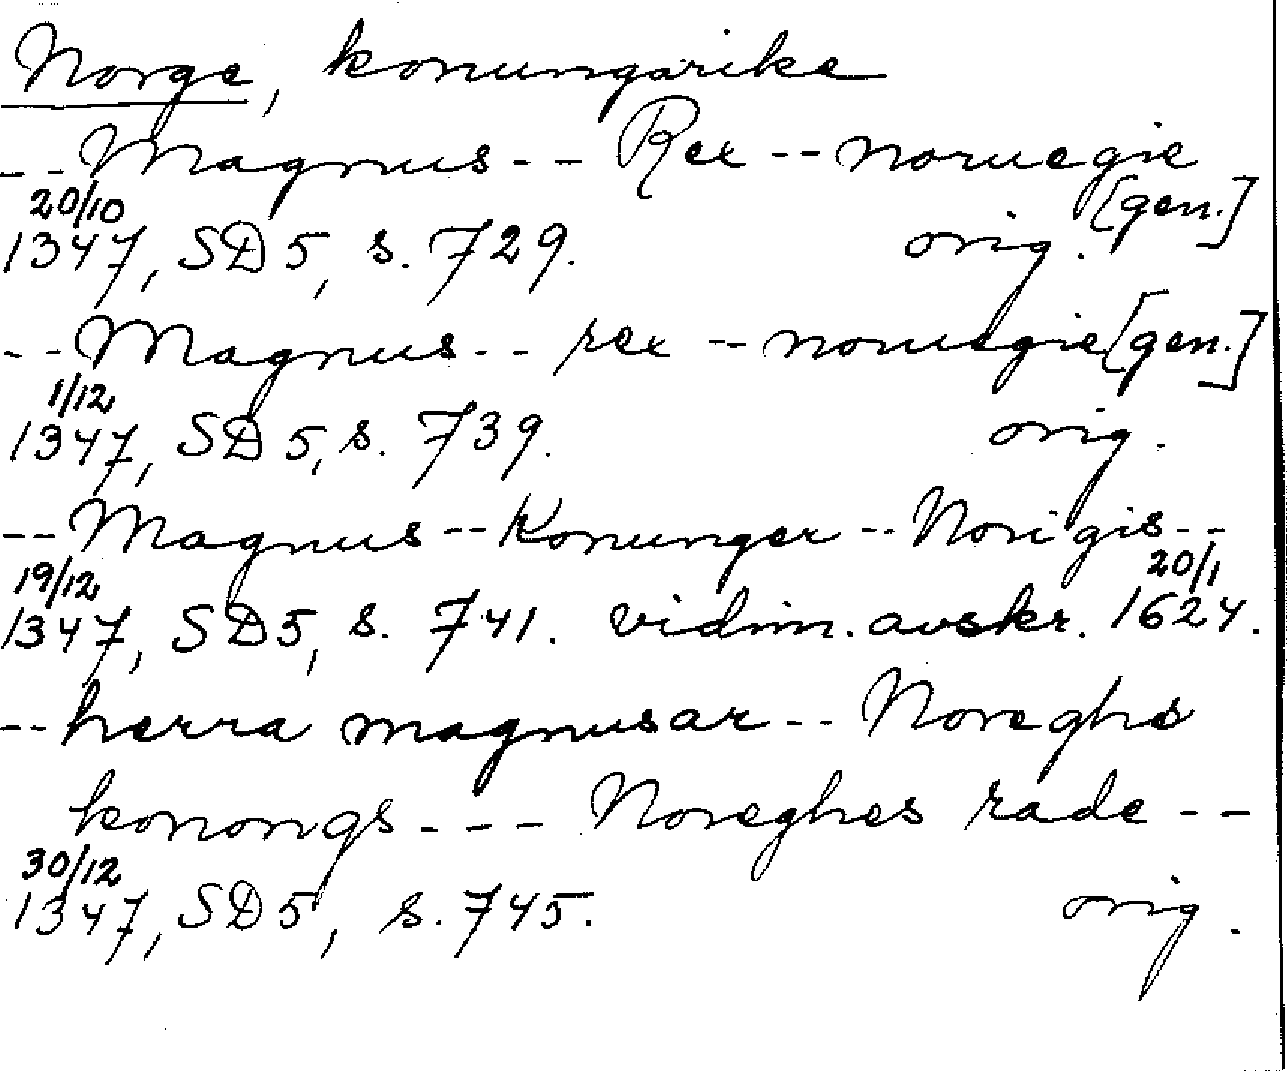 Norge, konungarike
-- Magnus -- Rex -- noruegie
[gen.]
20/10
1347, SD 5, s. 729. orig.
-- Magnus -- rex -- noruegie [gen.]
1/12
1347, SD 5, s. 739. orig.
-- Magnus -- Konunger -- Norigis --
19/12 20/1
1347, SD 5, s. 741. vidim. avskr. 1624.
-- herra magnusar -- Noreghs
konongs --- Noreghes rade --
30/12
1347, SD 5, s. 745. orig.